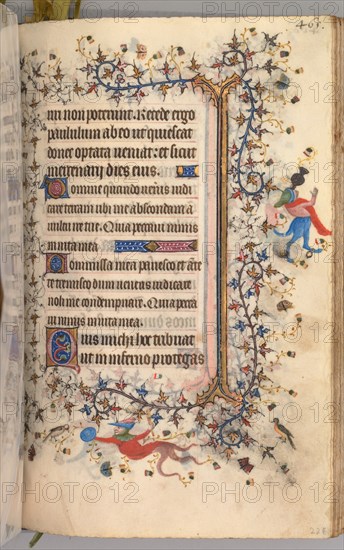 461.
in non poterunt. Recede ergo
paululum ab eo ut quiescat
donec optata veniat: et sicut
mercenarij dies eius.
Domine quando veneris iudi
care terram ubi me abscondam a
vultu ire tue. Quia peccavi nimis
in vita mea.
Commissa mea pavesco et ante
te erubesco dum veneris iudicare
noli me condempnare. Quia pecca
vi nimis in vita mea.
Quis michi hoc tribuat
ut in inferno protegas